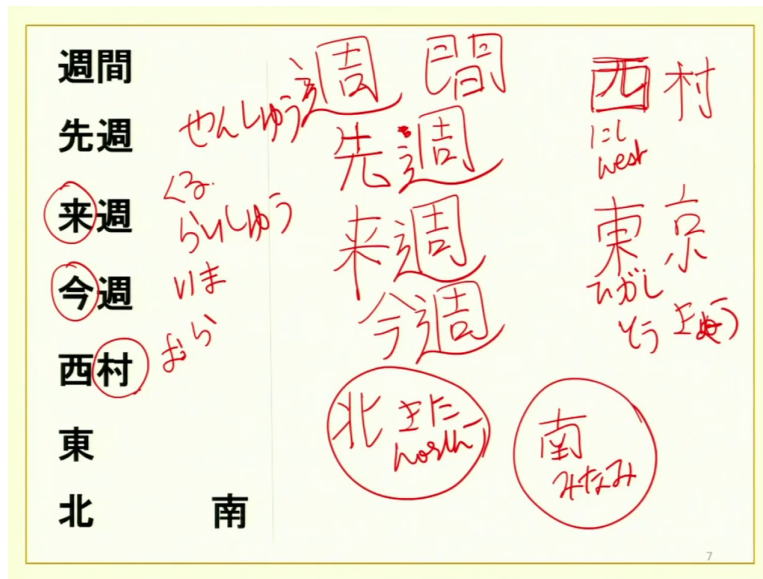 週間
先週
来週
今週
西村
東
北 南
せんしゅう
くる
らいしゅう
いま
むら
週間
先週
来週
今週
北 きた
north
南
みなみ
西村
にし
west
東京
ひがし
とう きょう
7